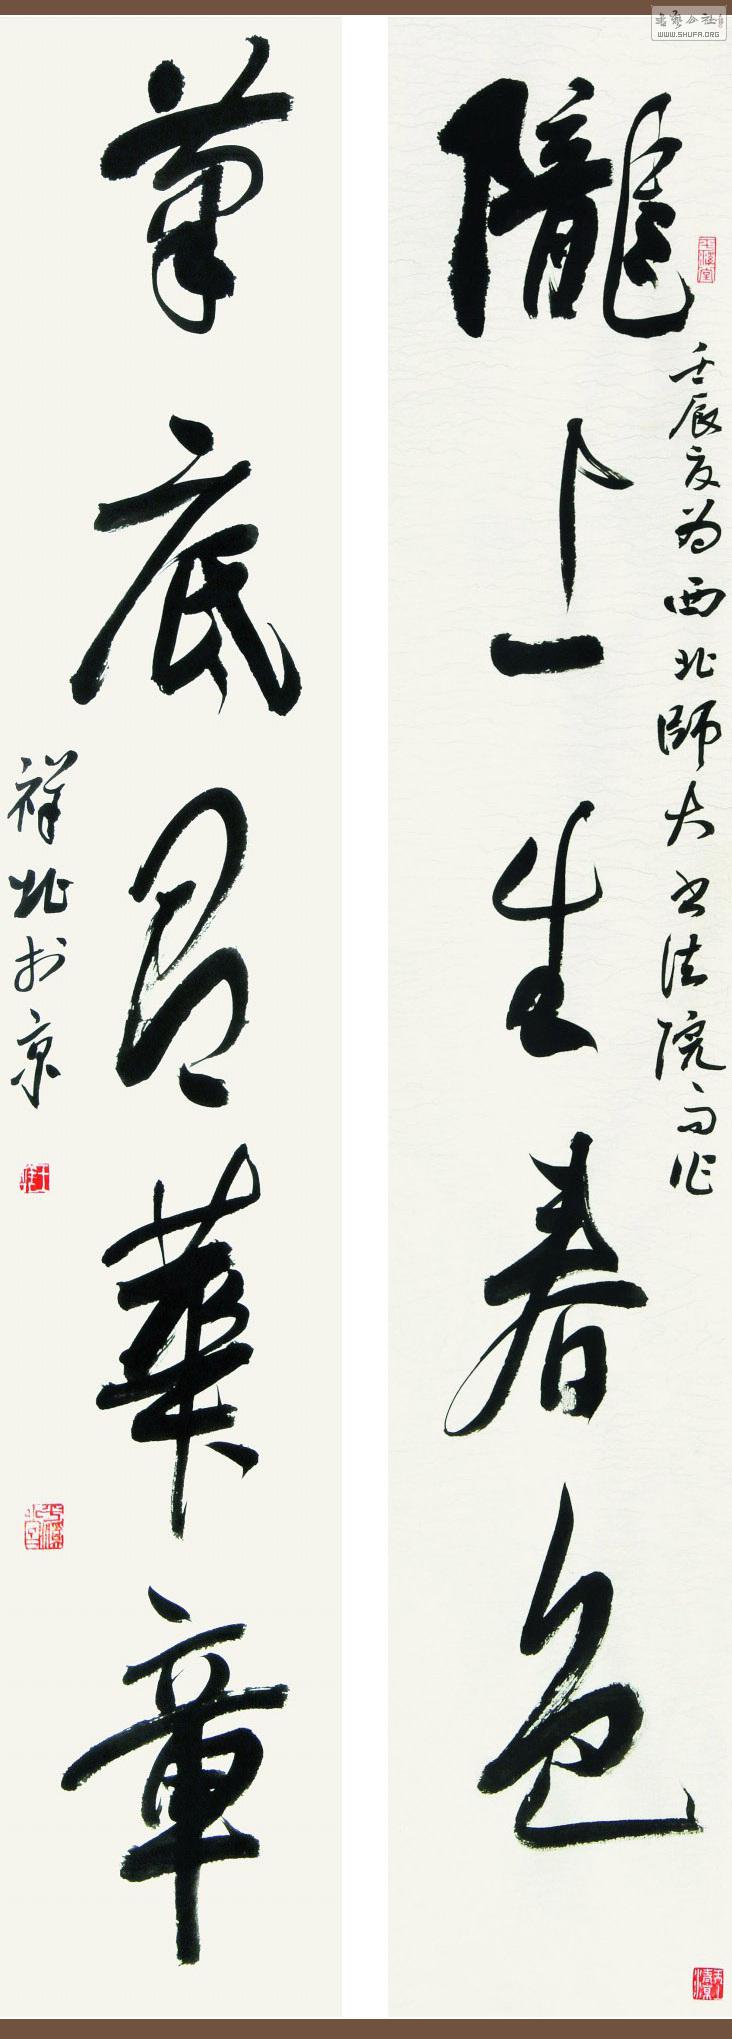 書藝公社
WWW.SHUFA.ORG
隴上生春色
壬辰夏为西北師大书法院而作
筆底華章
祥北於京